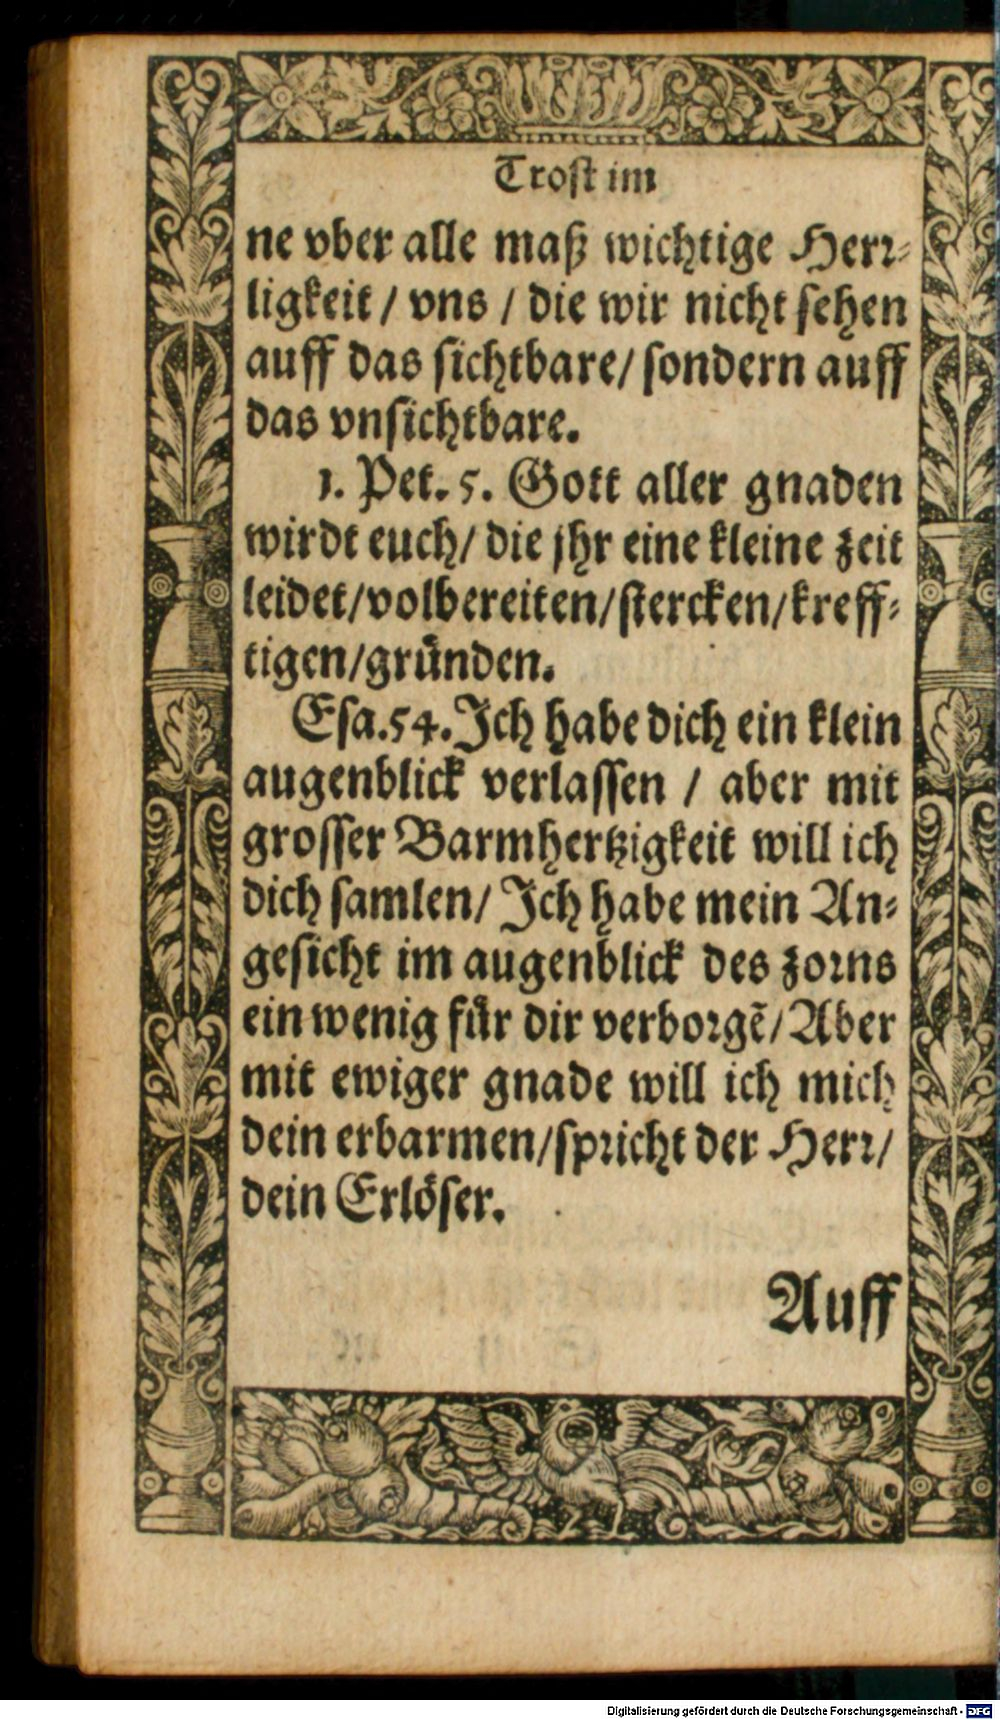 Trost im
ne vber alle maß wichtige Herr-
ligkeit / vns / die wir nicht sehen
auff das sichtbare/ sondern auff
das vnsichtbare.
1. Pet. 5. Gott aller gnaden
wirdt euch/ die jhr eine kleine zeit
leidet/volbereiten/stercken/kreff-
tigen/gründen.
Esa.54. Ich habe dich ein klein
augenblick verlassen / aber mit
grosser Barmhertzigkeit will ich
dich samlen/ Ich habe mein An-
gesicht im augenblick des zorns
ein wenig für dir verborgẽ/ Aber
mit ewiger gnade will ich mich
dein erbarmen/spricht der Herr/
dein Erlöser.
Auff
Digitalisierung gefördert durch die Deutsche Forschungsgemeinschaft - DFG